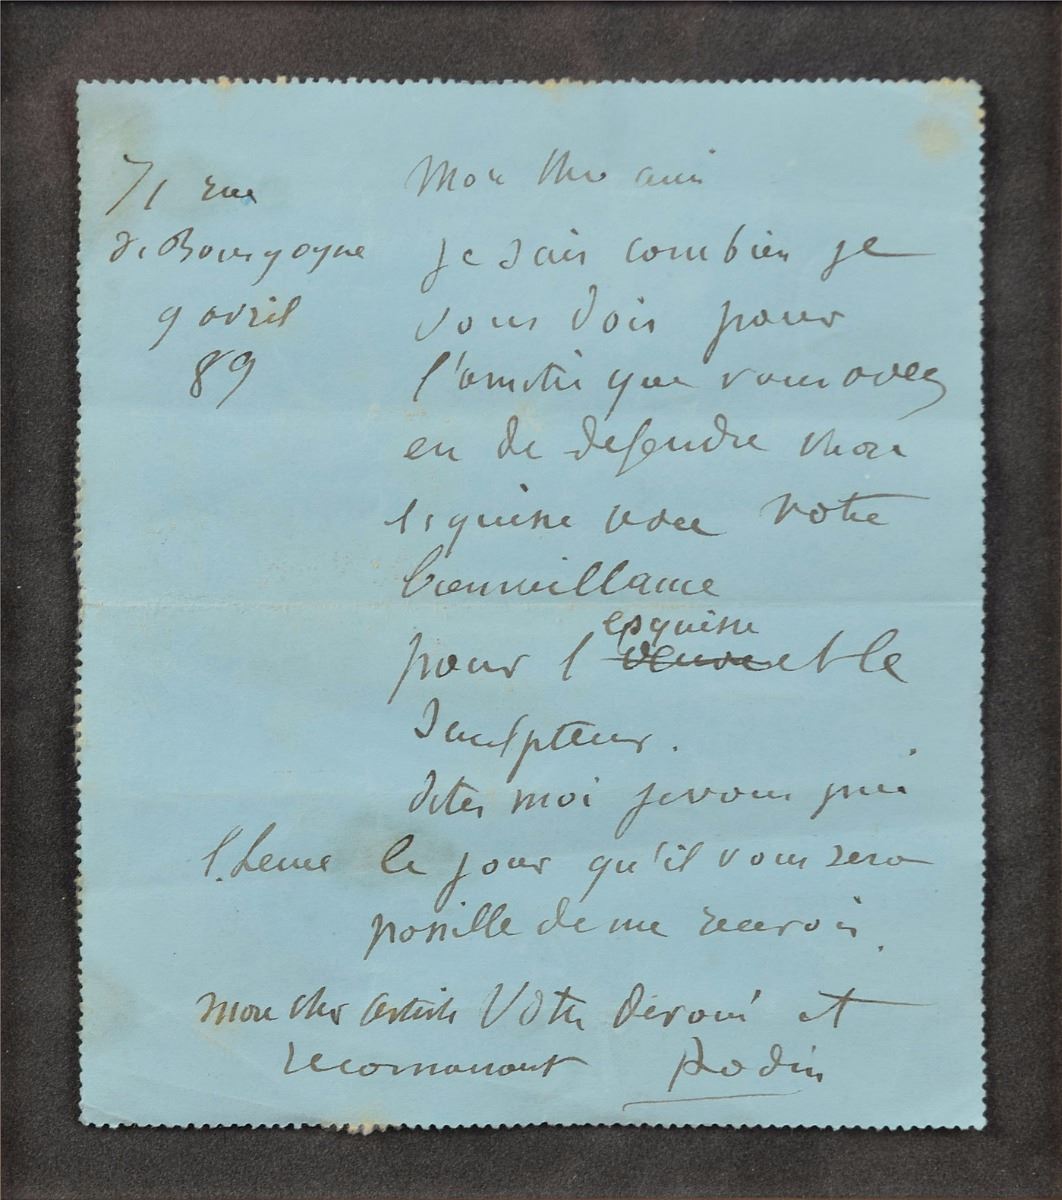 71 rue
de Bourgogne
9 avril
89
Mon cher ami
Je sais combien je
vous dois pour
l'amitié que vous avez
eu de defendre mon
esquisse avec votre
bienveillance
esquisse
pour l' et le
Sculpteur.
dites moi je vous prie
l'heure le jour qu'il vous sera
possible de me recevoir.
mon cher artiste Votre devoué et
reconnaissant Rodin